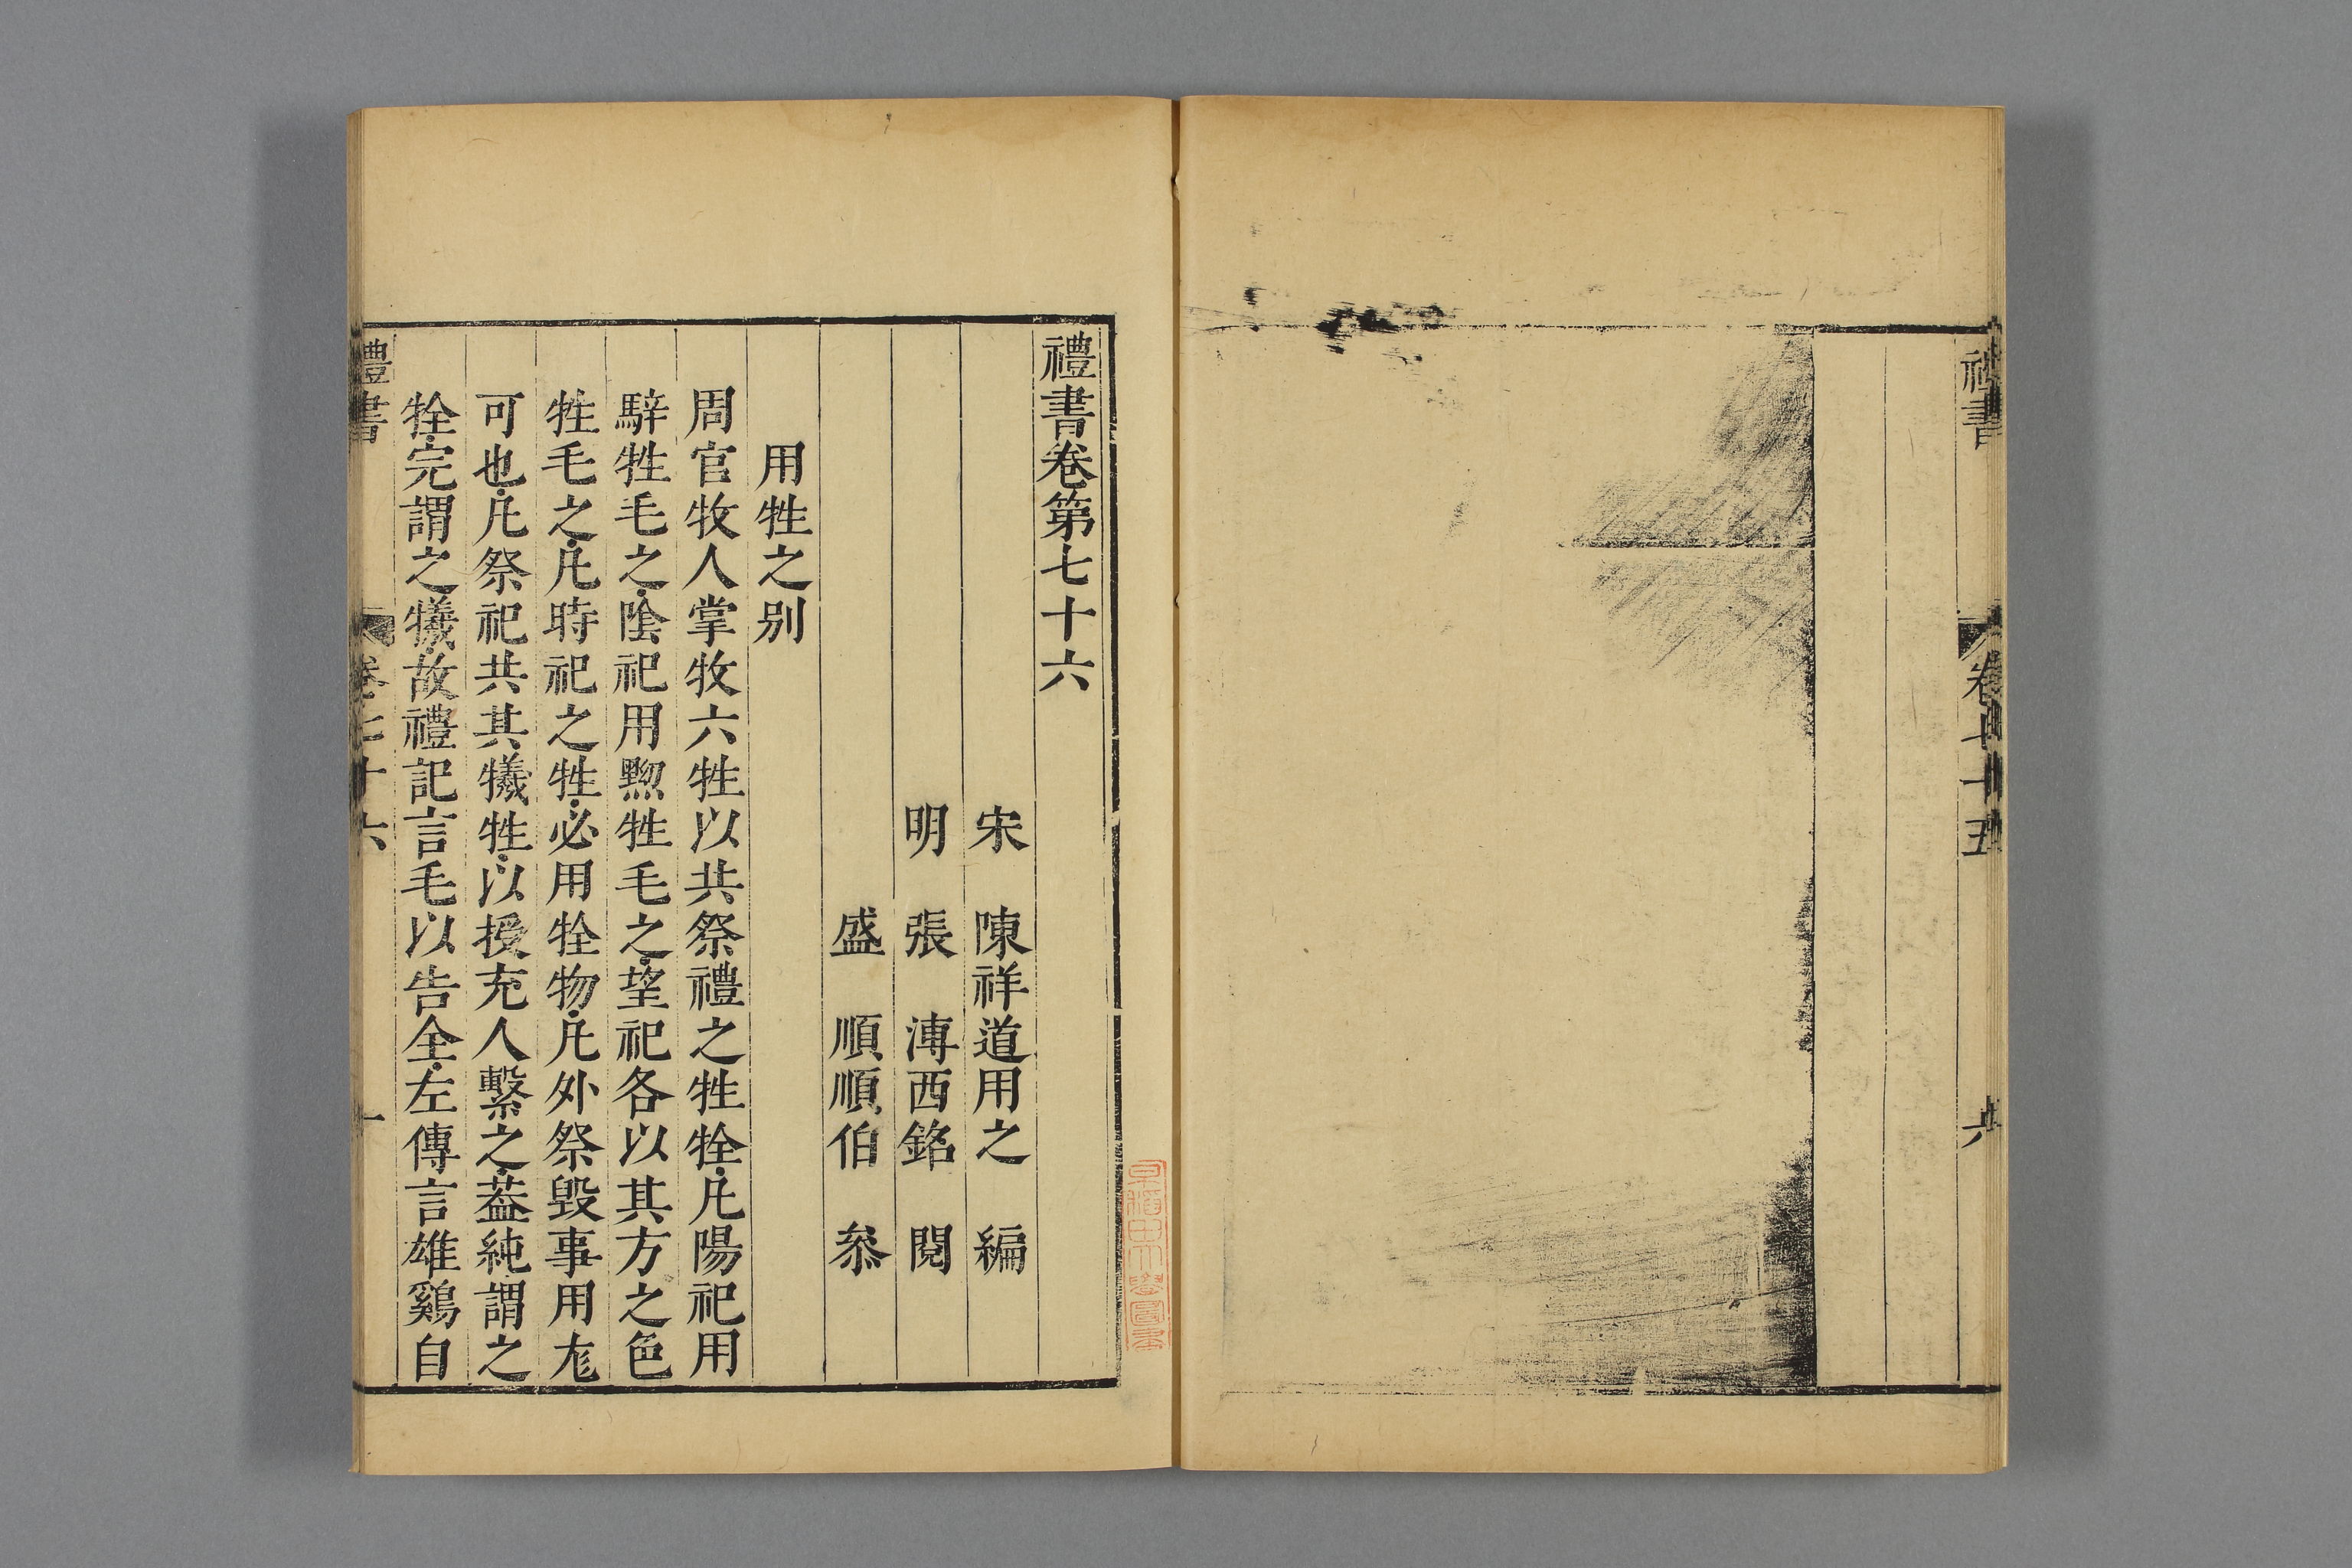 禮書
卷七十五
六
禮書卷第七十六
宋　陳祥道用之　編
明　張　溥西銘　閱
盛　順順伯　叅
用牲之别
周官牧人掌牧六牲以共祭禮之牲牷凡陽祀用
騂牲毛之陰祀用黝牲毛之望祀各以其方之色
牲毛之凡時祀之牲必用牷物凡外祭毁事用尨
可也凡祭祀共其犧牲以授充人繫之葢純謂之
牷完謂之犧故禮記言毛以告全左傳言雄鷄自
禮書
卷七十六
一
早稻田大學圖書